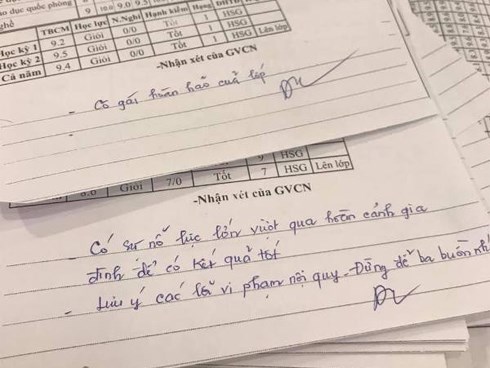 ục quốc phòng 9 10.0 9.0 9.5
TBCM Học lực N.Nghỉ Hạnh kiểm Hạng
Học kỳ 1 9.2 Giỏi 0/0 Tốt 1 HSG
Học kỳ 2 9.5 Giỏi 0/0 Tốt 1 HSG
Cả năm 9.4 Giỏi 0/0 Tốt 1 HSG Lên lớp
-Nhận xét của GVCN
- Cô gái hoàn hảo của lớp
9 HSG
8.0 Giỏi 7/0 Tốt 7 HSG Lên lớp
-Nhận xét của GVCN
- Có sự nỗ lực lớn vượt qua hoàn cảnh gia
đình để có kết quả tốt
- Lưu ý các lỗi vi phạm nội quy. Đừng để ba buồn